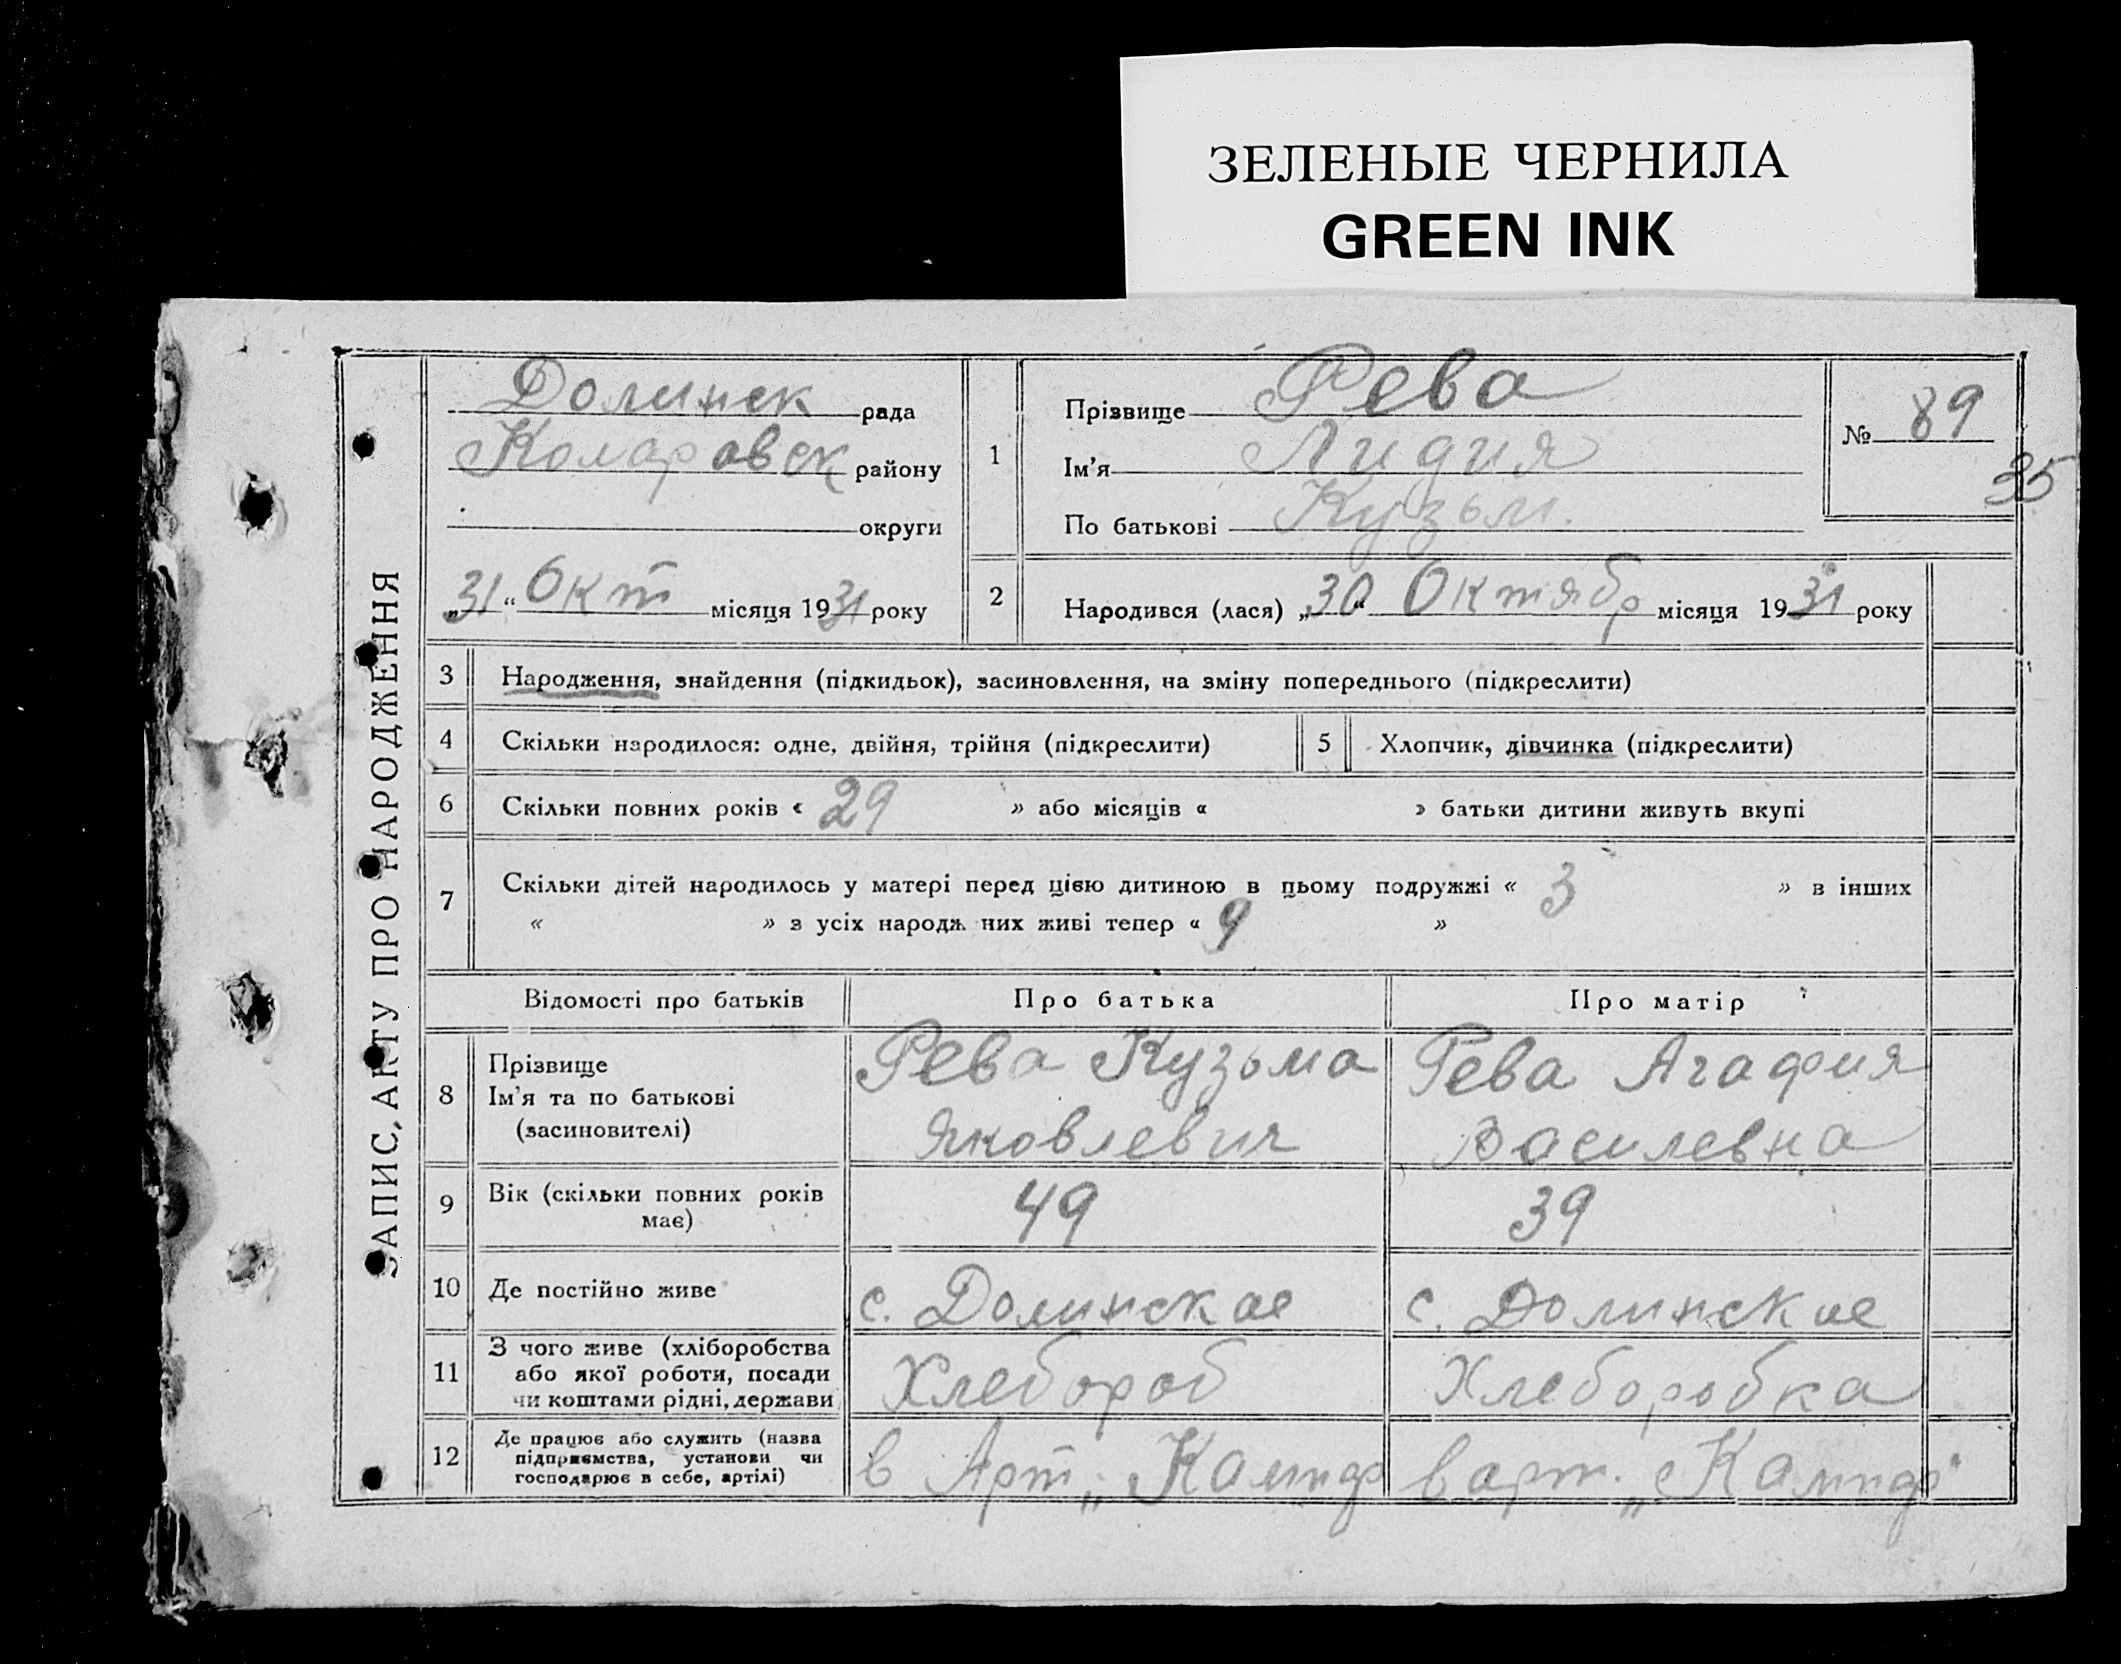 ЗЕЛЕНЫЕ ЧЕРНИЛА
GREEN INK
ЗАПИС, АКТУ ПРО НАРОДЖЕННЯ
Долинск рада
Коларовск району
округи
„31“ Окт місяця 1931 року
1
Прізвище Рева
Ім’я Лидия
По батькові Кузьм.
№ 89
35
2
Народився (лася) „30“ Октябр місяця 1931 року
3 Народження, знайдення (підкидьок), засиновлення, на зміну попереднього (підкреслити)
4 Скільки народилося: одне, двійня, трійня (підкреслити)
5 Хлопчик, дівчинка (підкреслити)
6 Скільки повних років « 29 » або місяців « » батьки дитини живуть вкупі
7 Скільки дітей народилось у матері перед цією дитиною в цьому подружжі « 3 » в інших
« » з усіх народж них живі тепер « 4 »
Відомості про батьків Про батька Про матір
8
Прізвище
Ім’я та по батькові
(засиновителі)
Рева Кузьма
Яковлевич
Рева Агафия
Василевна
9
Вік (скільки повних років
має)
49
39
10 Де постійно живе
с. Долинское
с. Долинское
11
З чого живе (хліборобства
або якої роботи, посади
чи коштами рідні, держави
Хлебороб
Хлеборобка
12
Де працює або служить (назва
підприємства, установи чи
господарює в себе, артілі)
в Арт. „Кампф
в арт. „Кампф“